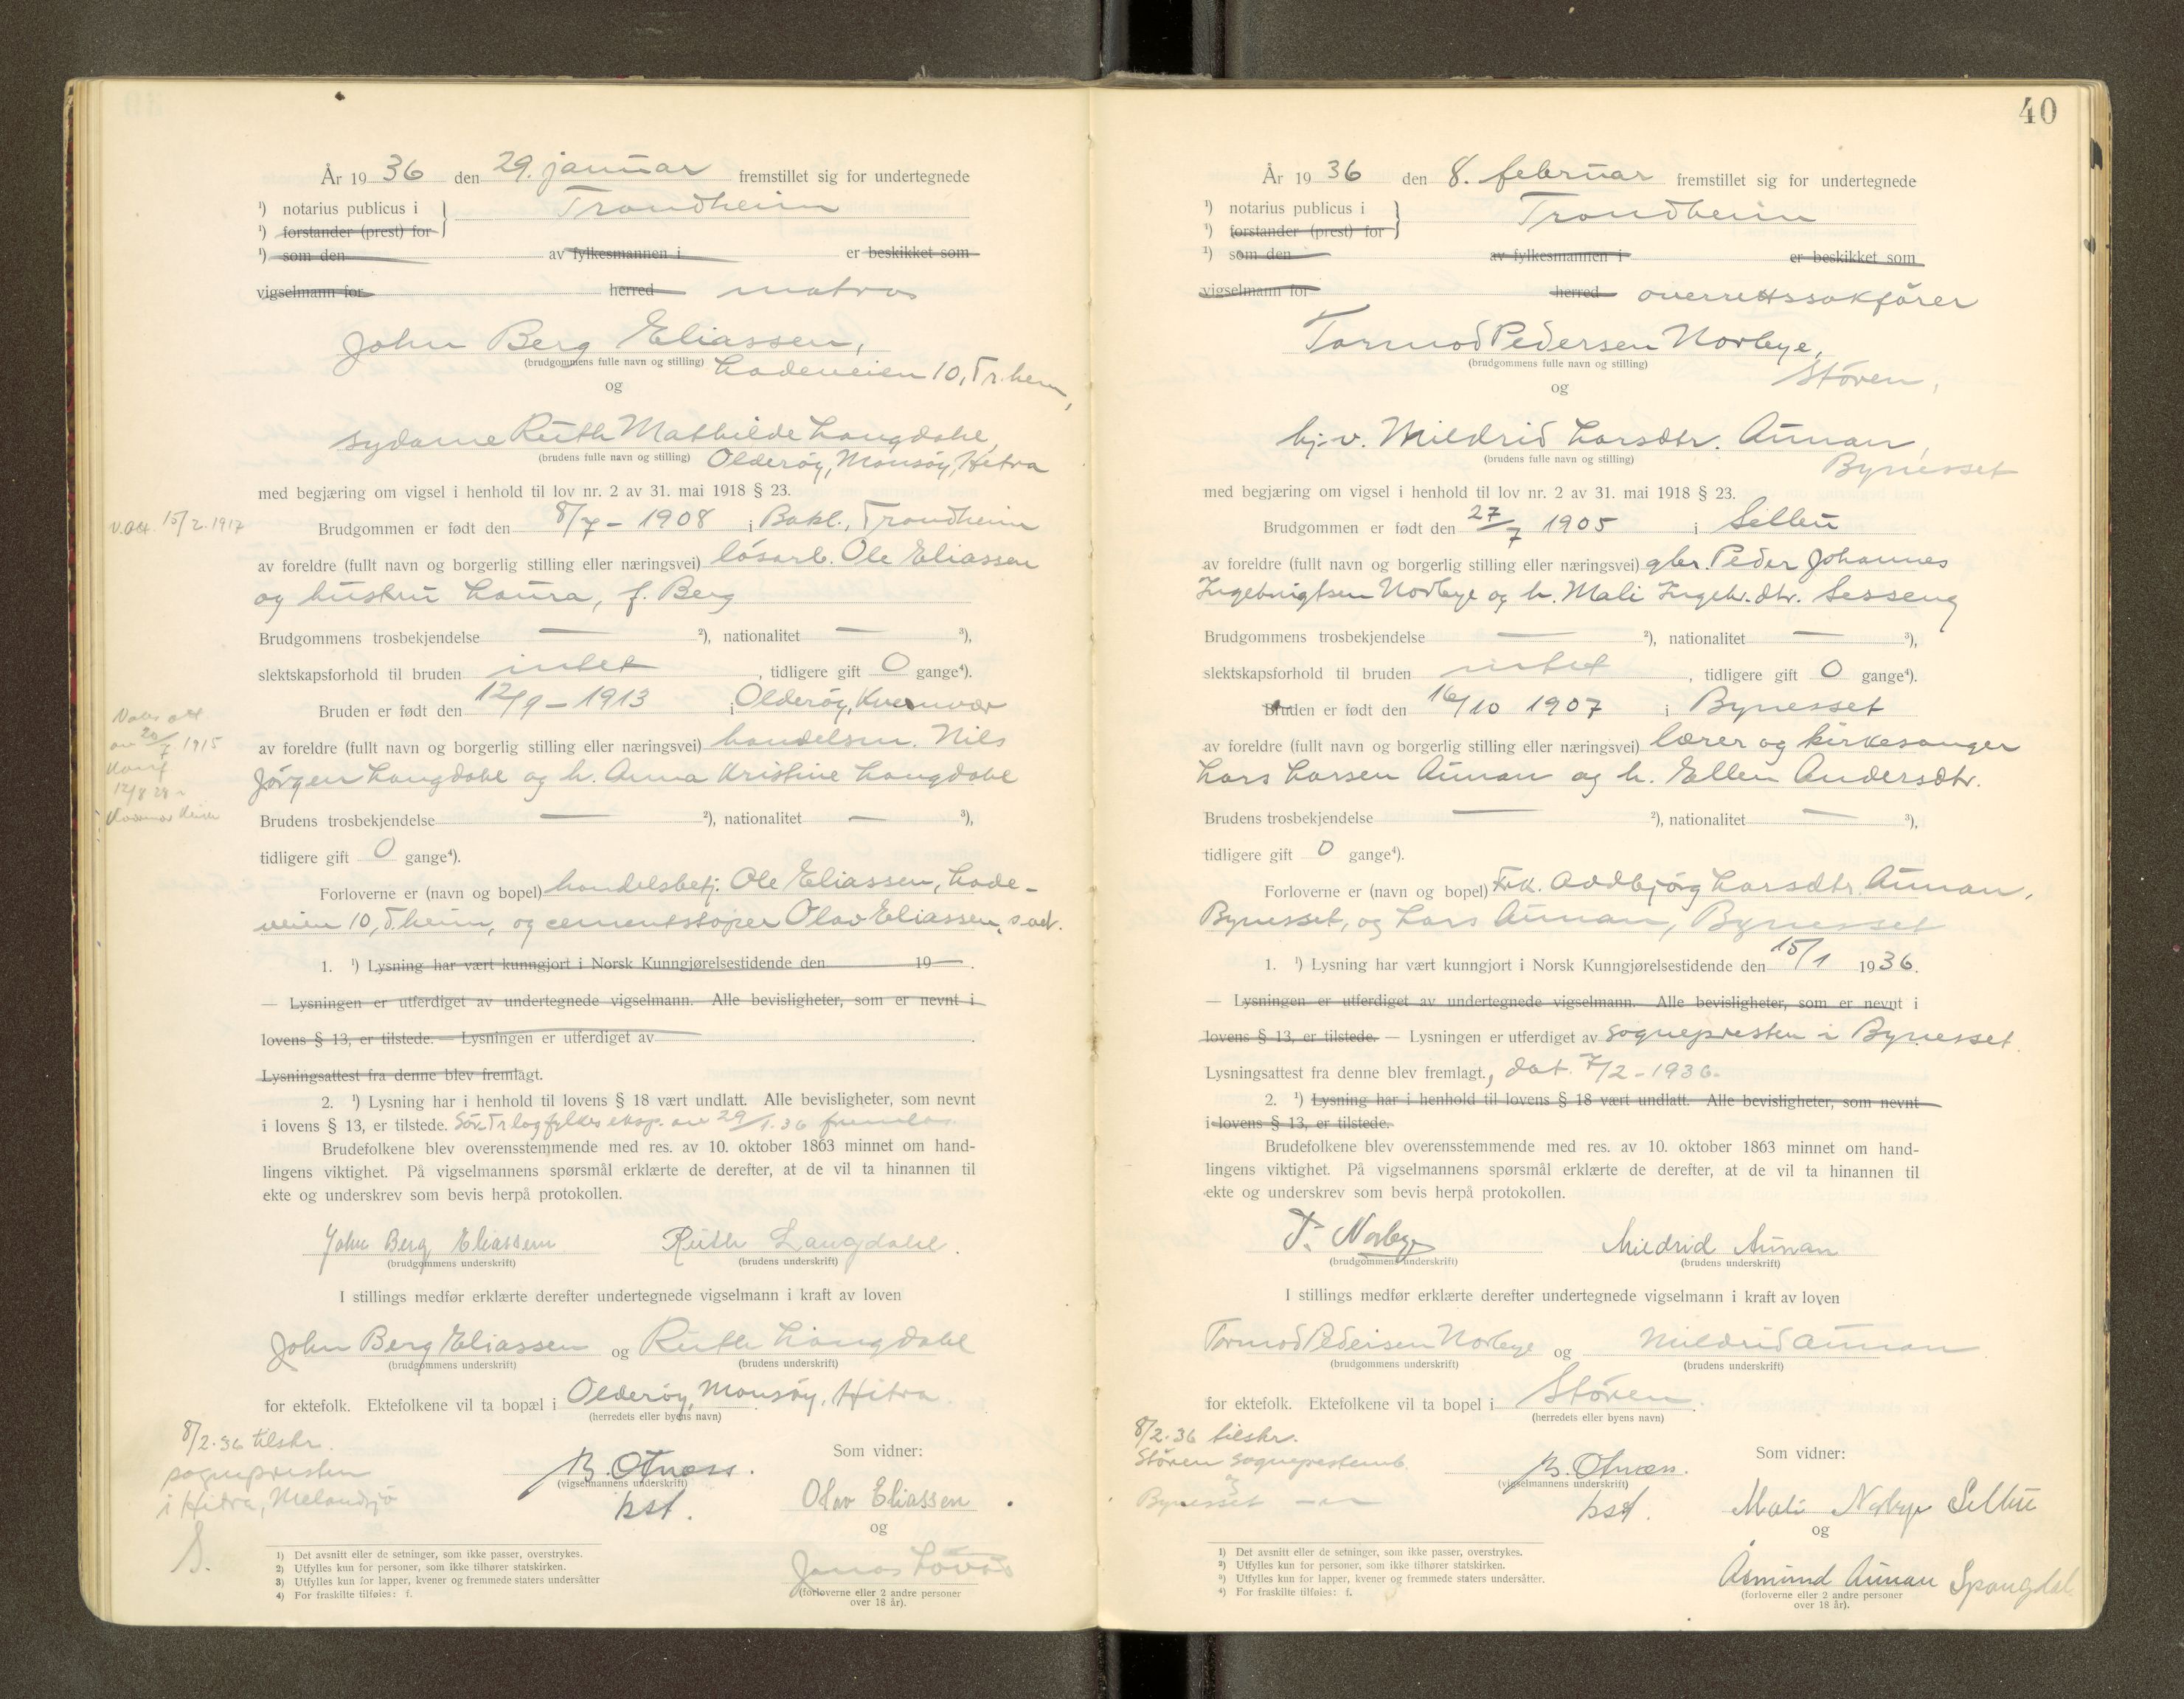 År 1936 den 29. januar fremstillet sig for undertegnede
¹) notarius publicus i } Trondheim
¹) forstander (prest) for
¹) som den av fylkesmannen i er beskikket som
vigselmann for herred matros
John Berg Eliassen,
(brudgommens fulle navn og stilling) Ladeveien 10, Tr.heim,
og
sydame Ruth Mathilde Langdahl,
(brudens fulle navn og stilling) Olderøy, Mausøy, Hitra
med begjæring om vigsel i henhold til lov nr. 2 av 31. mai 1918 § 23.
v. att. 15/2. 1917
Brudgommen er født den 8/7 - 1908 i Bakl., Trondheim
av foreldre (fullt navn og borgerlig stilling eller næringsvei) løsarb. Ole Eliassen
og hustru Laura, f. Berg
Brudgommens trosbekjendelse — ²), nationalitet — ³),
slektskapsforhold til bruden intet, tidligere gift 0 gange⁴).
Bruden er født den 12/9 - 1913 i Olderøy, Kvenvær
av foreldre (fullt navn og borgerlig stilling eller næringsvei) handelsm. Nils
Jørgen Langdahl og h. Anna Kristine Langdahl
20/7 1915
12/8 28
Brudens trosbekjendelse — ²), nationalitet — ³),
tidligere gift 0 gange⁴).
Forloverne er (navn og bopel) handelsbetj. Ole Eliassen, Lade-
veien 10, T.heim, og cementstøper Olav Eliassen, s. ad.
1. ¹) Lysning har vært kunngjort i Norsk Kunngjørelsestidende den 19 — .
— Lysningen er utferdiget av undertegnede vigselmann. Alle bevisligheter, som er nevnt i
lovens § 13, er tilstede. — Lysningen er utferdiget av .
Lysningsattest fra denne blev fremlagt.
2. ¹) Lysning har i henhold til lovens § 18 vært undlatt. Alle bevisligheter, som nevnt
i lovens § 13, er tilstede. Sør-Tr.lag fylkes eksp. av 29/1. 36
Brudefolkene blev overensstemmende med res. av 10. oktober 1863 minnet om hand-
lingens viktighet. På vigselmannens spørsmål erklærte de derefter, at de vil ta hinannen til
ekte og underskrev som bevis herpå protokollen.
John Berg Eliassen Ruth Langdahl.
(brudgommens underskrift) (brudens underskrift)
I stillings medfør erklærte derefter undertegnede vigselmann i kraft av loven
John Berg Eliassen og Ruth Langdahl
(brudgommens underskrift) (brudens underskrift)
for ektefolk. Ektefolkene vil ta bopæl i Olderøy, Mausøy, Hitra.
(herredets eller byens navn)
8/2. 36 tilskr.
sognepresten
i Hitra, Melandsjø
B. Otnæss.
(vigselmannens underskrift)
kst.
Som vidner:
Olav Eliassen
og
Jonas
(forloverne eller 2 andre personer
over 18 år).
1) Det avsnitt eller de setninger, som ikke passer, overstrykes.
2) Utfylles kun for personer, som ikke tilhører statskirken.
3) Utfylles kun for lapper, kvener og fremmede staters undersåtter
4) For fraskilte tilføies: f.
40
År 1936 den 8. februar fremstillet sig for undertegnede
¹) notarius publicus i } Trondheim
¹) forstander (prest) for
¹) som den av fylkesmannen i er beskikket som
vigselmann for herred overrettssakfører
Tormod Pedersen Norbye,
(brudgommens fulle navn og stilling) Støren,
og
hj.v. Mildrid Larsdtr. Aunan,
(brudens fulle navn og stilling) Bynesset
med begjæring om vigsel i henhold til lov nr. 2 av 31. mai 1918 § 23.
Brudgommen er født den 27/7 1905 i Selbu
av foreldre (fullt navn og borgerlig stilling eller næringsvei) gbr. Peder Johannes
Ingebrigtsen Norbye og h. Mali Ingebr.dtr. Sesseng
Brudgommens trosbekjendelse — ²), nationalitet — ³),
slektskapsforhold til bruden intet, tidligere gift 0 gange⁴).
Bruden er født den 16/10 1907 i Bynesset
av foreldre (fullt navn og borgerlig stilling eller næringsvei) lærer og kirkesanger
Lars Larsen Aunan og h. Ellen Andersdtr.
Brudens trosbekjendelse — ²), nationalitet — ³),
tidligere gift 0 gange⁴).
Forloverne er (navn og bopel) Frk. Oddbjørg Larsdtr. Aunan,
Bynesset, og Lars Aunan, Bynesset
1. ¹) Lysning har vært kunngjort i Norsk Kunngjørelsestidende den 15/1 1936.
— Lysningen er utferdiget av undertegnede vigselmann. Alle bevisligheter, som er nevnt i
lovens § 13, er tilstede. — Lysningen er utferdiget av sognepresten i Bynesset.
Lysningsattest fra denne blev fremlagt., dat. 7/2 - 1936.
2. ¹) Lysning har i henhold til lovens § 18 vært undlatt. Alle bevisligheter, som nevnt
i lovens § 13, er tilstede.
Brudefolkene blev overensstemmende med res. av 10. oktober 1863 minnet om hand-
lingens viktighet. På vigselmannens spørsmål erklærte de derefter, at de vil ta hinannen til
ekte og underskrev som bevis herpå protokollen.
T. Norbye Mildrid Aunan
(brudgommens underskrift) (brudens underskrift)
I stillings medfør erklærte derefter undertegnede vigselmann i kraft av loven
Tormod Pedersen Norbye og Mildrid Aunan
(brudgommens underskrift) (brudens underskrift)
for ektefolk. Ektefolkene vil ta bopel i Støren.
(herredets eller byens navn)
8/2. 36 tilskr.
Støren sogneprestemb.
Bynesset
B. Otnæss.
(vigselmannens underskrift)
kst.
Som vidner:
Mali Norbye Selbu
og
Åsmund Aunan Spongdal
(forloverne eller 2 andre personer
over 18 år).
¹) Det avsnitt eller de setninger, som ikke passer, overstrykes.
²) Utfylles kun for personer, som ikke tilhører statskirken.
³) Utfylles kun for lapper, kvener og fremmede staters undersåtter.
⁴) For fraskilte tilføies: f.